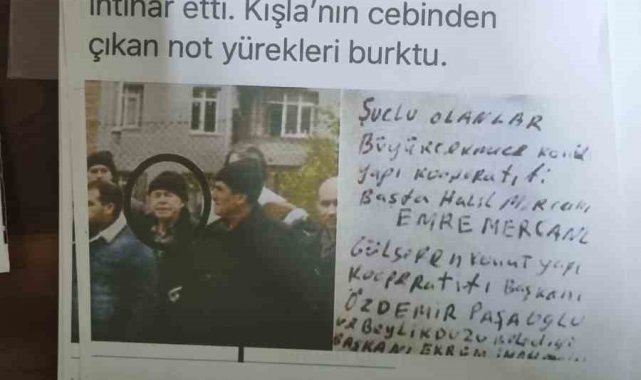 intihar etti. Kışla'nın cebinden
çıkan not yürekleri burktu.
ŞUCLU OLANLAR
yapı kooperatifi
Başta Halil
EMRE MERCAN
GÜLŞEREN Konut yapı
KOOPERATİFİ BAŞKANI
ÖZDEMİR PAŞAOĞLU
Ve Beylikdüzü
BAŞKANI EKREM